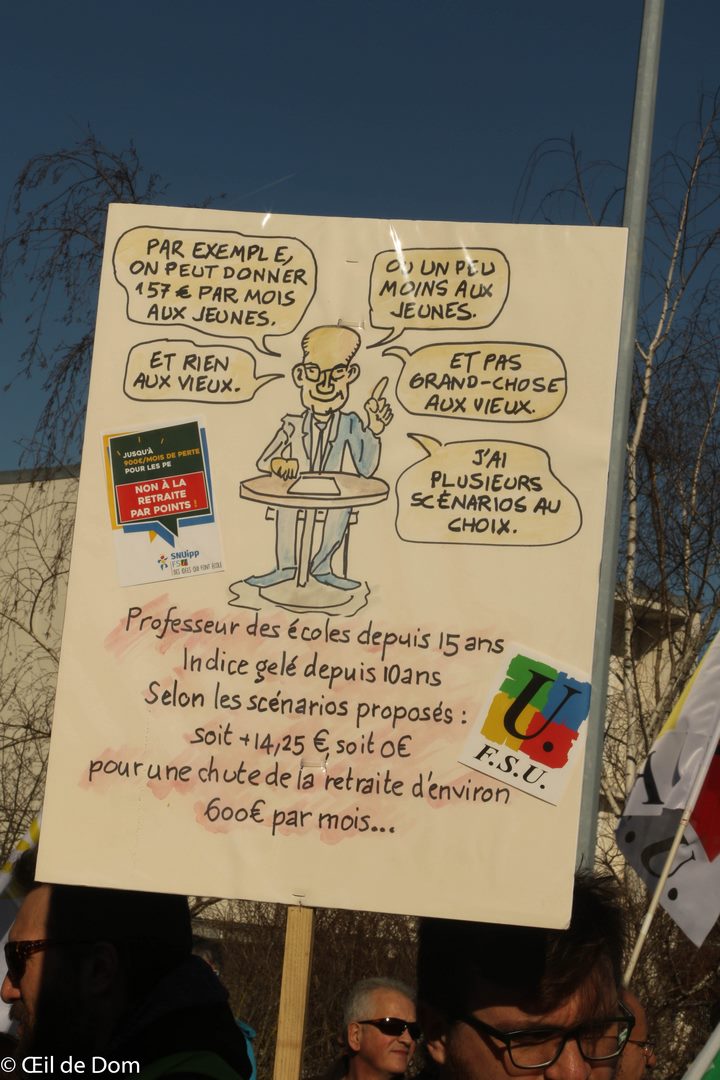 PAR EXEMPLE,
ON PEUT DONNER
157 € PAR MOIS
AUX JEUNES.
OU UN PEU
MOINS AUX
JEUNES.
ET RIEN
AUX VIEUX.
ET PAS
GRAND-CHOSE
AUX VIEUX.
J'AI
PLUSIEURS
SCÉNARIOS AU
CHOIX.
JUSQU'À
900€/MOIS DE PERTE
POUR LES PE
NON À LA
RETRAITE
PAR POINTS !
SNUipp
FSU
DES IDÉES QUI FONT ÉCOLE
Professeur des écoles depuis 15 ans
Indice gelé depuis 10 ans
Selon les scénarios proposés :
soit +14,25 €, soit 0€
pour une chute de la retraite d'environ
600€ par mois...
U.
F.S.U.
U.
© Œil de Dom